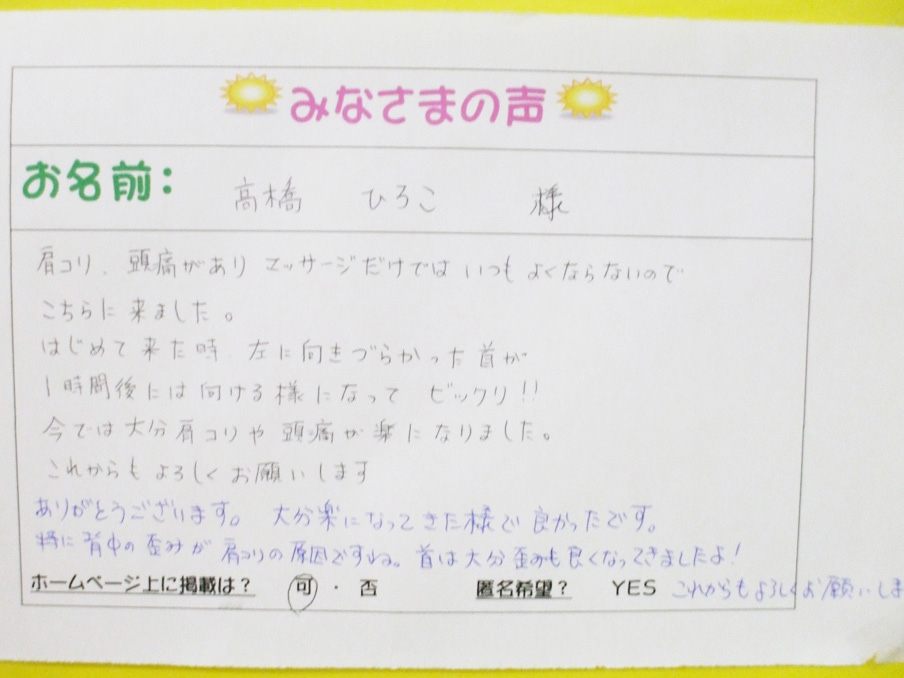 みなさまの声
お名前: 高橋 ひろこ 様
肩コリ、頭痛があり マッサージだけでは いつも よくならないので
こちらに来ました。
はじめて来た時 左に向きづらかった首が
1時間後には向ける様になって ビックリ!!
今では大分肩コリや頭痛が楽になりました。
これからもよろしくお願いします
ありがとうございます。 大分楽になってきた様で良かったです。
特に背中の歪みが肩コリの原因ですね。首は大分歪みも良くなってきましたよ!
ホームページ上に掲載は? 可・否 匿名希望? YES これからもよろしくお願いしま